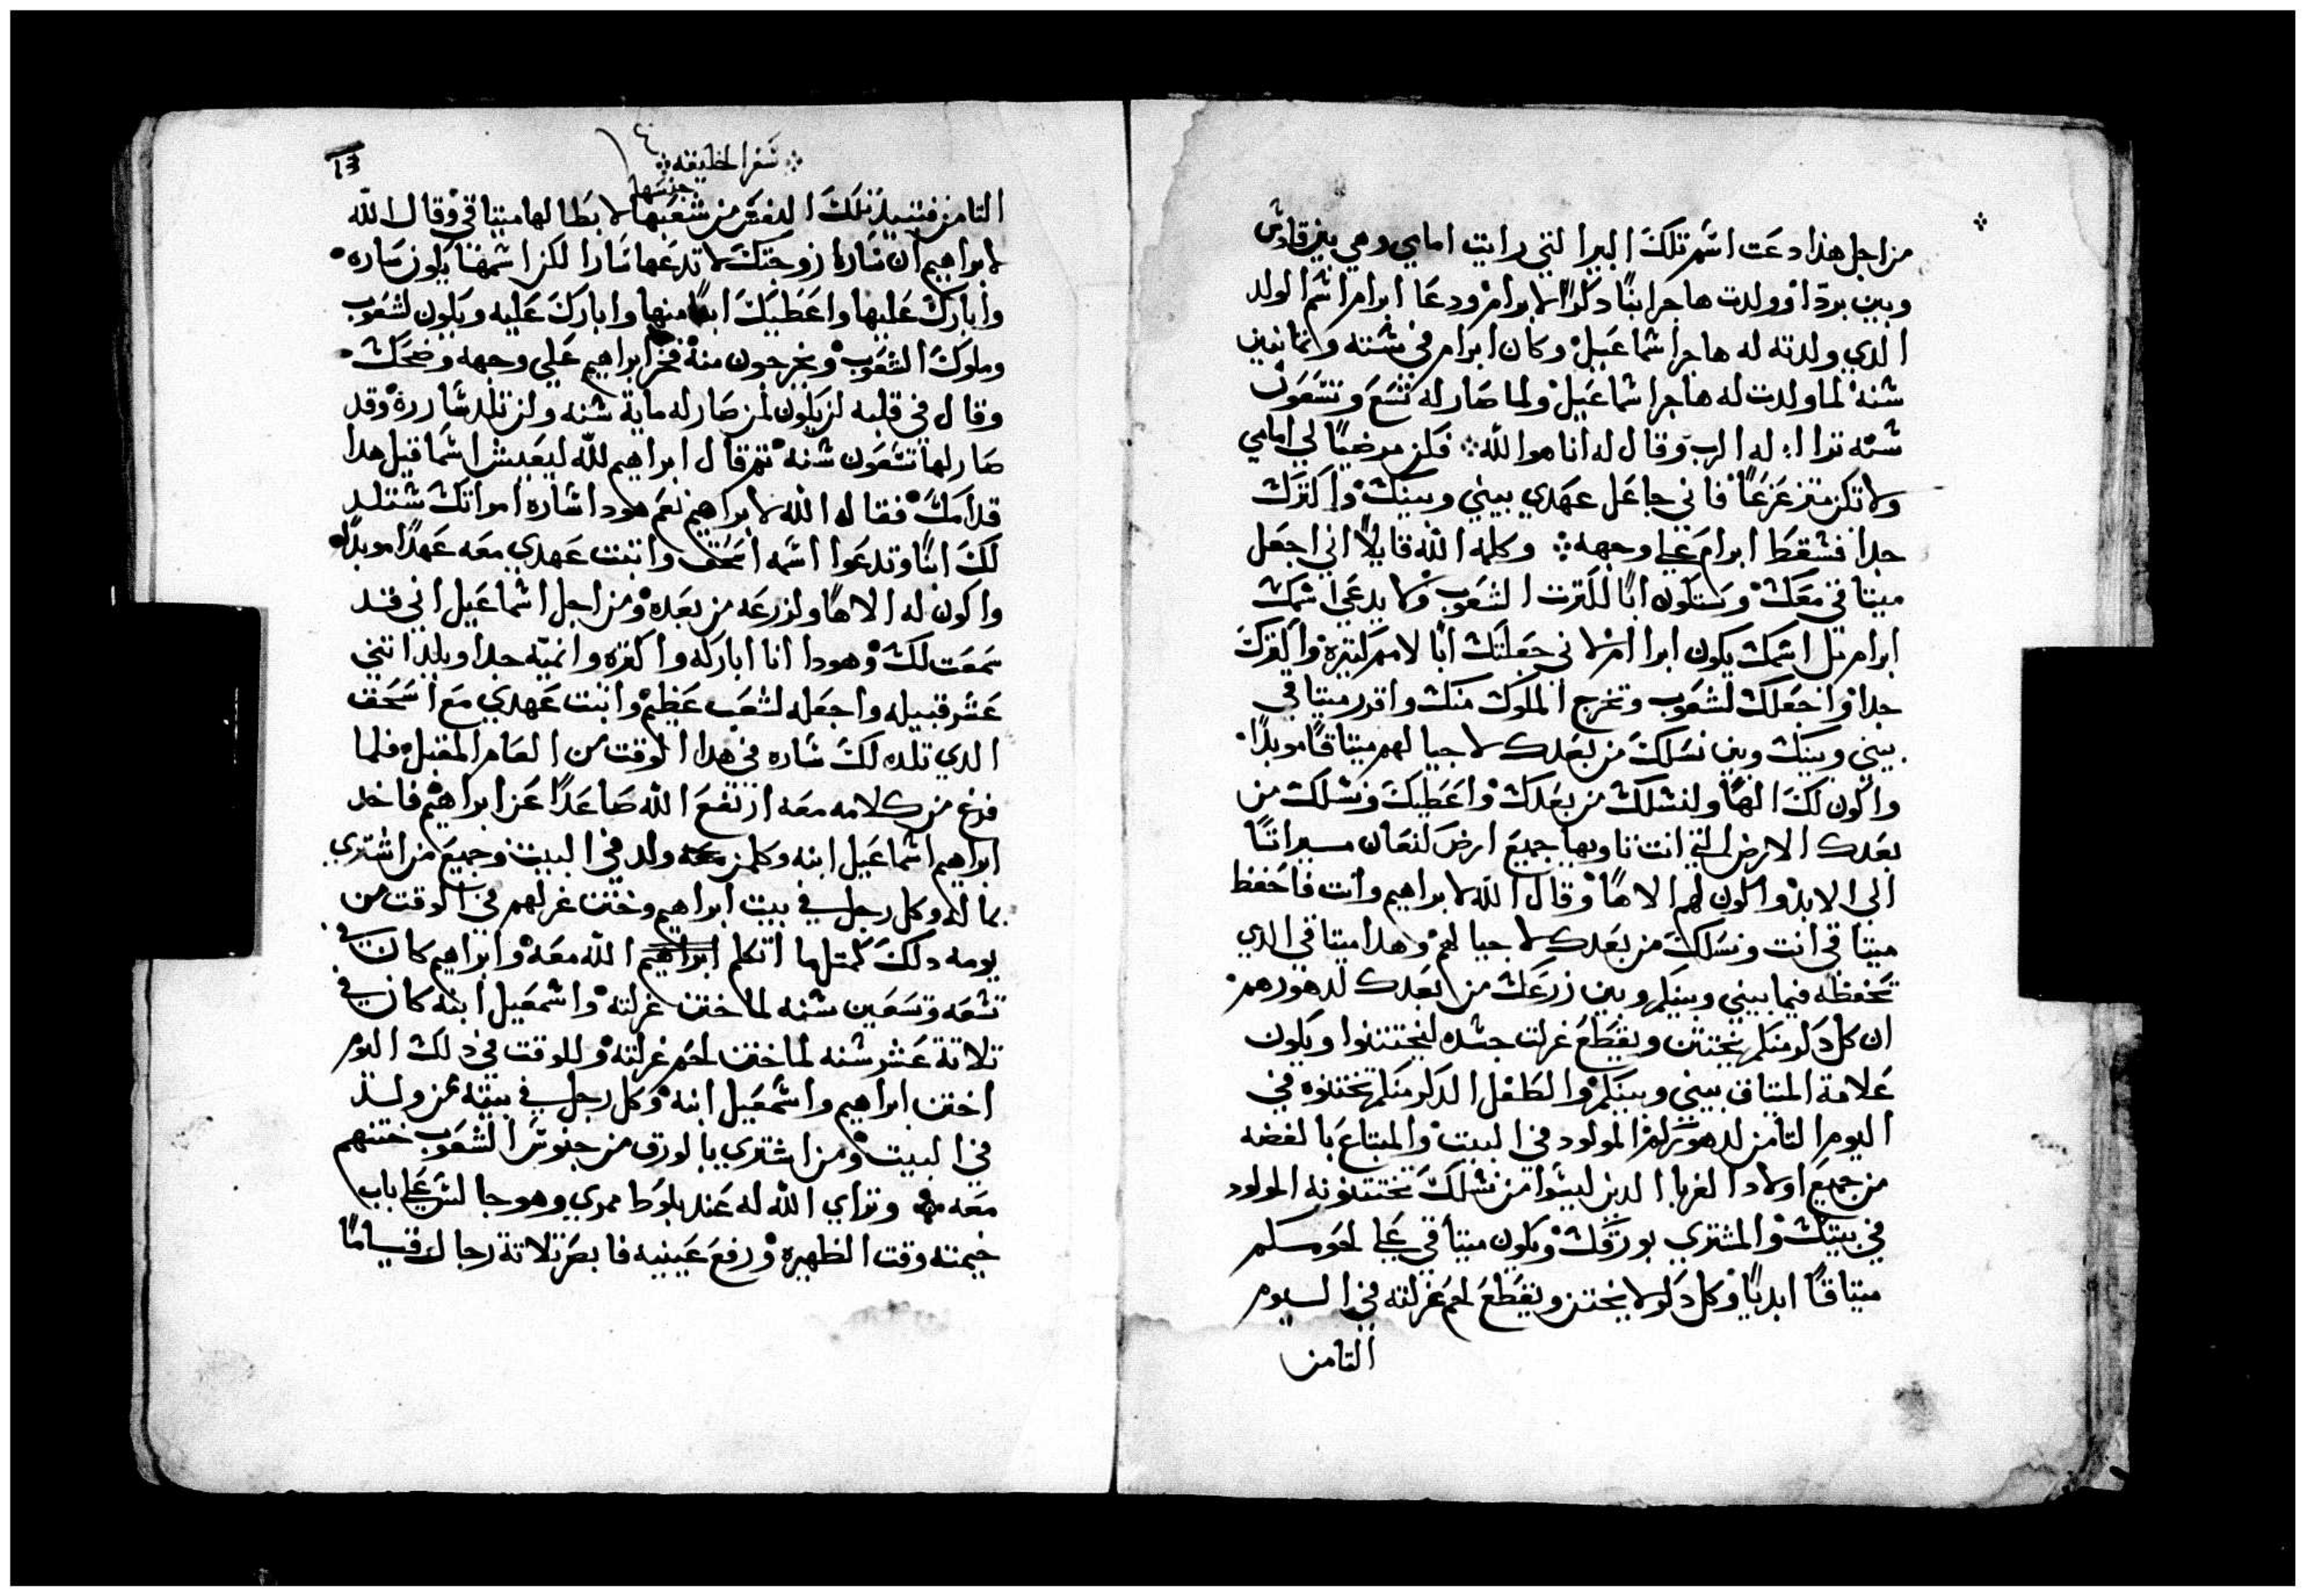 من اجل هذا دعت اسم تلك البير التي رايت امامي وهي بين قادش
وبين بردا وولدت هاجر ابنًا دكرًا لابرام ودعا ابرام اسم الولد
الدي ولدته له هاجر اسماعيل وكان ابرام في سته وتمانين
سنه لما ولدت له هاجر اسماعيل ولما صار له تسع وتسعون
سنه تراا له الرب وقال له انا هو الله فكن مرضيًا لي امامي
ولا تكن متزعزعًا فاني جاعل عهدي بيني وبينك واكترك
جدا فسقط ابرام علي وجهه وكلمه الله قايلًا اني اجعل
ميتاقي معك وستكون ابًا لكترت الشعوب ولا يدعي اسمك
ابرام بل اسمك يكون ابراام لاني جعلتك ابًا لامم كتيره واكترك
جدا واجعلك لشعوب وتخرج الملوك منك واقرر ميتاقي
بيني وبينك وبين نسلك من بعدك لاجيالهم ميتاقًا موبدًا
واكون لك الهًا ولنسلك من بعدك واعطيك ونسلك من
بعدك الارض التي انت تاويها جميع ارض كنعان ميراتًا
الي الابد واكون لهم الاهًا وقال الله لابراهيم وانت فاحفظ
ميتاقي انت ونسلك من بعدك لاجيالهم وهدا ميتاقي الدي
تحفظه فيما بيني وبينكم وبين زرعك من بعدك لدهورهم
ان كل دكر منكم يختتن ويقطع غرلت جسده ليختتنوا ويكون
علامة الميتاق بيني وبينكم والطفل الدكر منكم تختنوه في
اليوم التامن لدهورهم المولود في البيت والمبتاع بالفضه
من جميع اولاد الغربا الدين ليسوا من نسلك تختتنونه المولود
في بيتك والمشتري بورقك ويكون ميتاقي علي لحومكم
ميتاقًا ابديًا وكل دكر لا يختتن ويقطع لحم غرلته في اليوم
التامن
سفر الخليقه
13
جنسها
التامن فتبيد تلك النفس من شعبها لابطالها ميتاقي وقال الله
لابراهيم ان سارا زوجتك لا تدعها سارا لكن اسمها يكون ساره
وابارك عليها واعطيك ابنًا منها وابارك عليه ويكون لشعوب
وملوك الشعوب ويخرجون منه فخر ابراهيم علي وجهه وضحك
وقال في قلبه لن يكون لمن صار له ماية سنه ولن تلد ساررة وقد
صار لها تسعون سنه تم قال ابراهيم لله ليعيش اسماعيل هدا
قدامك فقال له الله لابراهيم نعم هودا ساره امراتك ستلد
لك ابنًا وتدعوا اسمه اسحق واتبت عهدي معه عهدًا موبدًا
واكون له الاهًا ولزرعه من بعده ومن اجل اسماعيل اني قد
سمعت لك وهودا انا اباركه واكتره وانميه جدا ويلد اتني
عشر قبيله واجعله لشعب عظيم واتبت عهدي مع اسحق
الدي تلده لك ساره في هدا الوقت من العام المقبل فلما
فرغ من كلامه معه ارتفع الله صاعدًا عن ابراهيم فاخد
ابراهيم اسماعيل ابنه وكلمن ولد في البيت وجميع من اشتري
بماله وكل رجل في بيت ابراهيم وختن غرلهم في الوقت من
يومه دلك كمتلما اتكلم الله معه وابراهيم كان في
تسعه وتسعين سنه لما ختن غرلته واسمعيل ابنه كان في
تلاتة عشر سنه لما ختن لحم غرلته وللوقت في دلك اليوم
اختتن ابراهيم واسمعيل ابنه وكل رجل في بيته ممن ولد
في البيت ومن اشتري بالورق من جنوس الشعوب ختنهم
معه وتراي الله له عند بلوط ممري وهو جالس علي باب
خيمته وقت الظهيره ورفع عينيه فابصر تلاتة رجال قيامًا